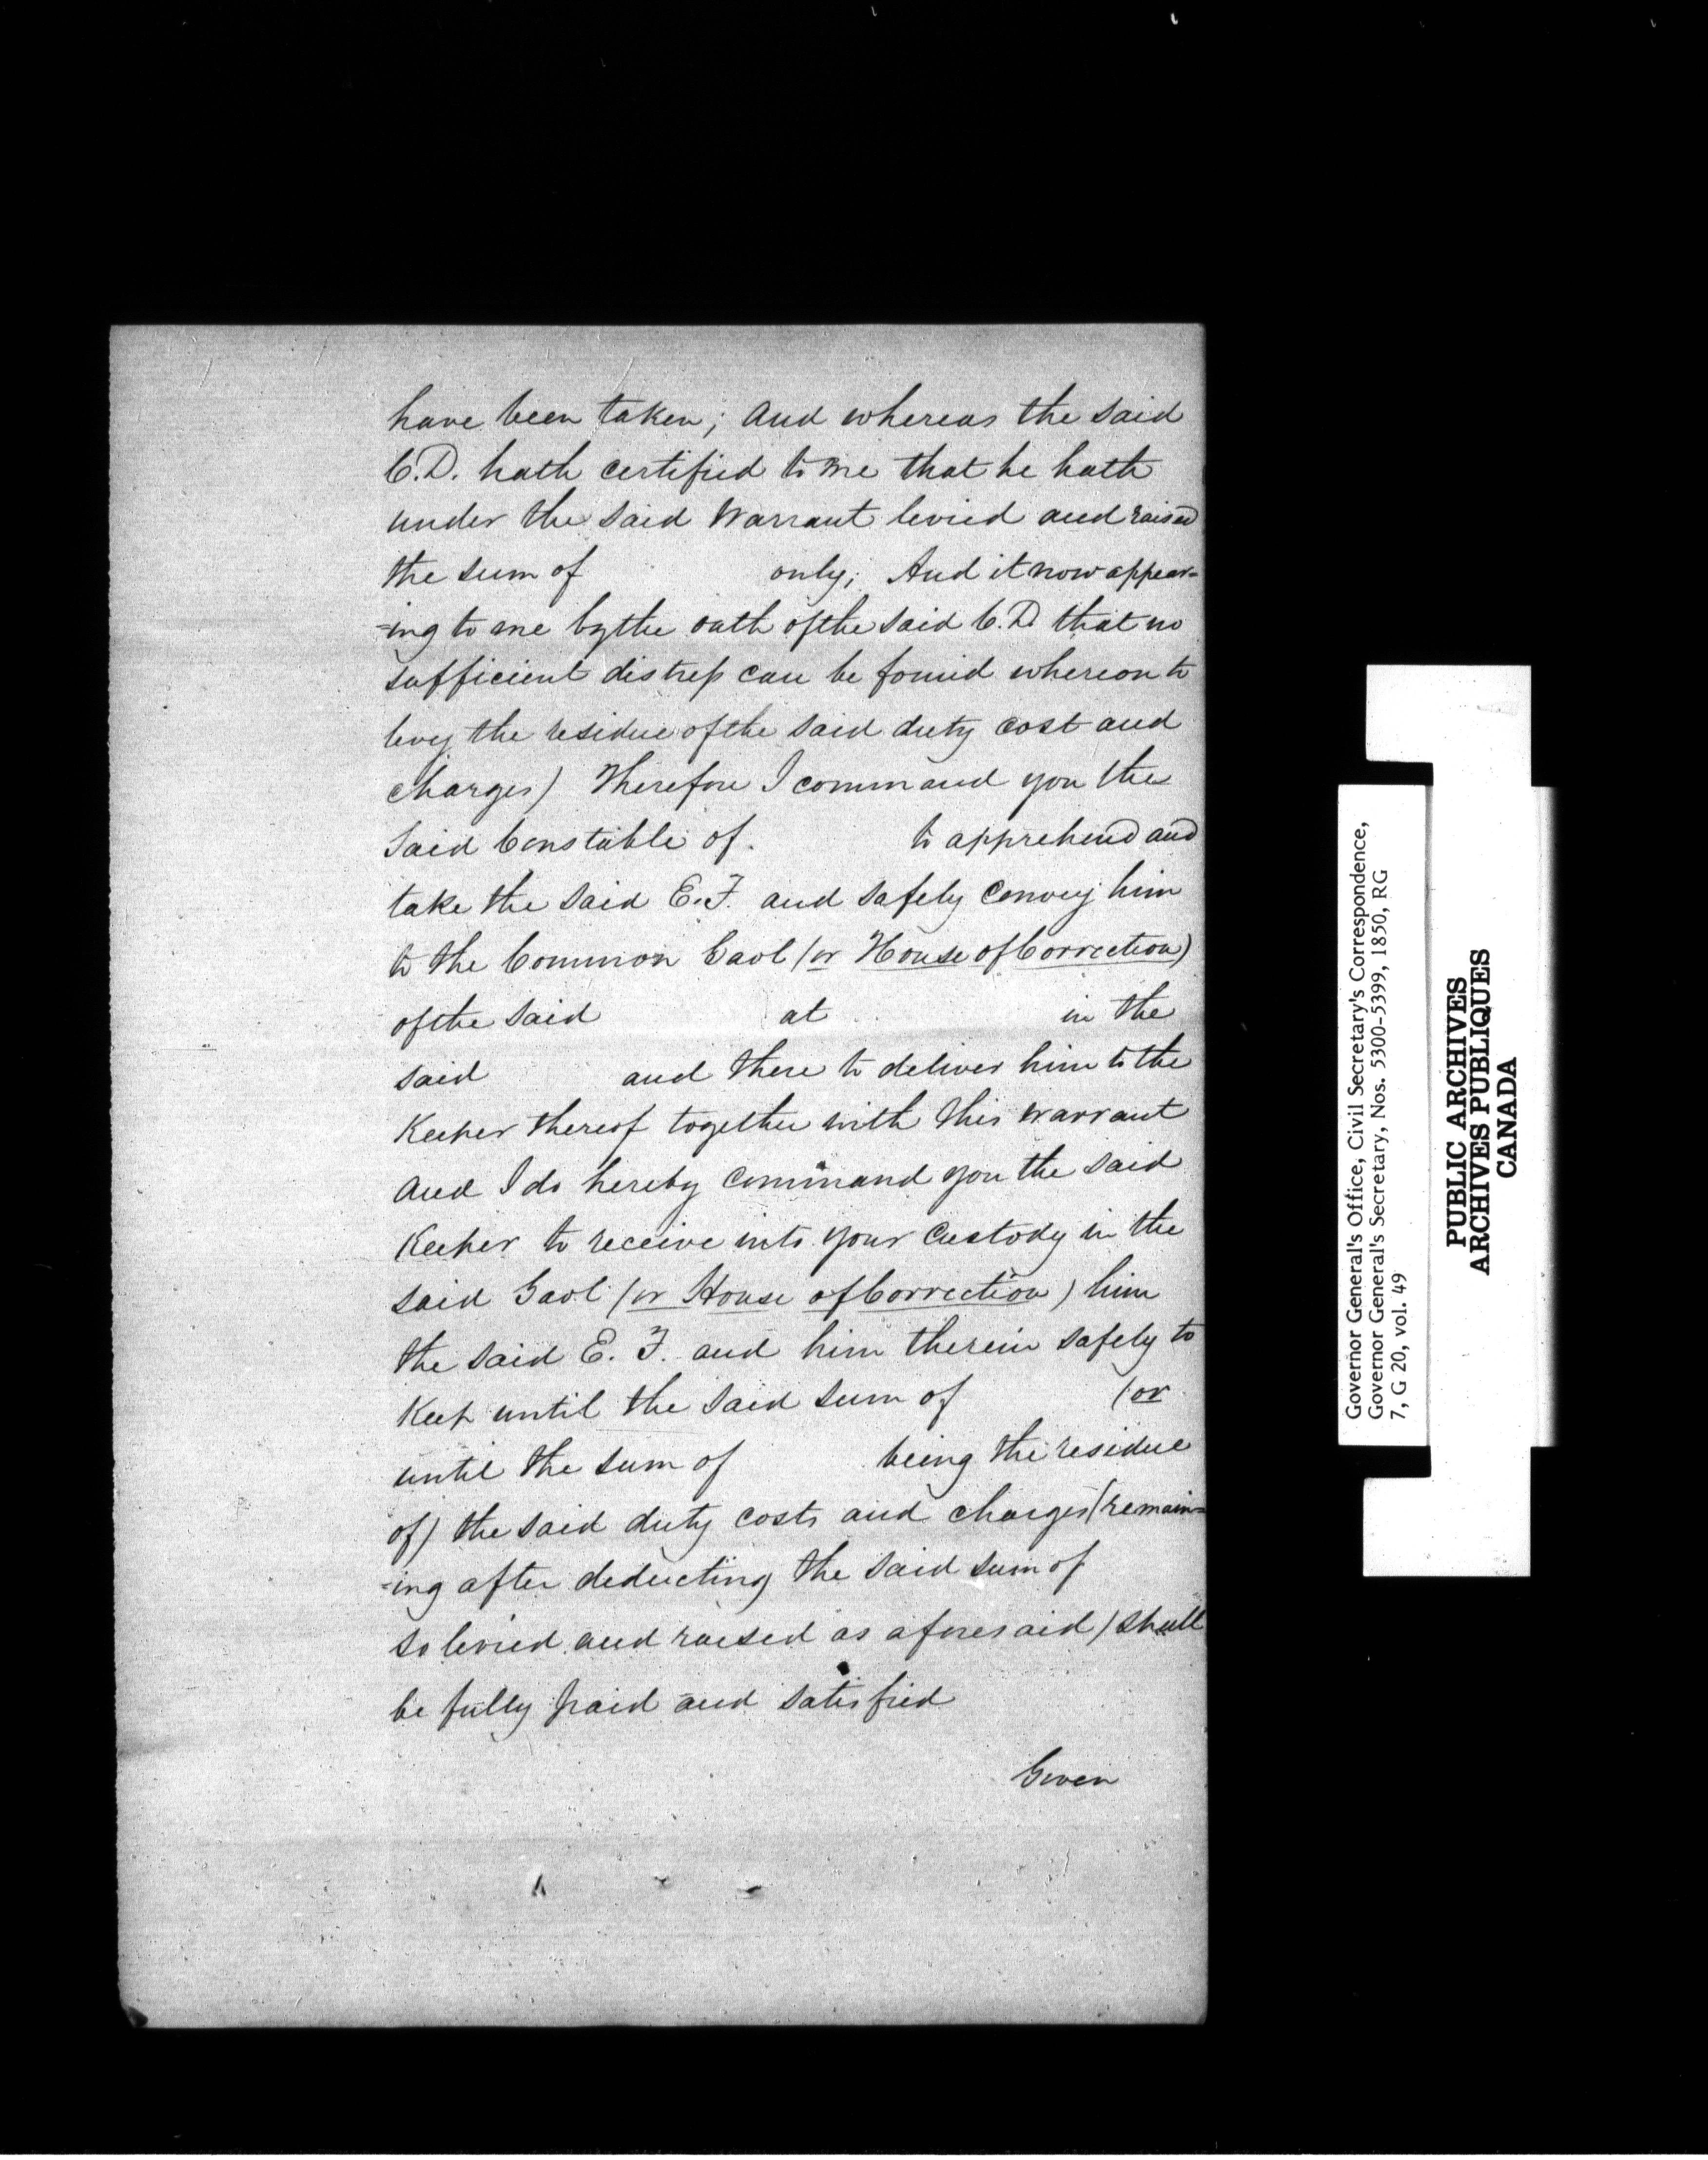 have been taken; And whereas the said
C.D. hath certified to me that he hath
under the said Warrant levied and raised
the sum of only; And it now appear=
=ing to me by the oath of the said C.D. that no
sufficient distress can be found whereon to
levy the residue of the said duty cost and
charges) Therefore I command you the
said Constable of. to apprehend and
take the said E.F. and safely convey him
to the Common Gaol (or House of Correction)
of the said at in the
said and there to deliver him to the
Keeper thereof together with this Warrant
And I do hereby command you the said
Keeper to receive into your custody in the
said Gaol (or House of Correction) him
the said E. F. and him therein safely to
Keep until the said sum of (or
until the sum of being the residue
of) the said duty costs and charges (remain=
=ing after deducting the said sum of
so levied and raised as aforesaid) shall
be fully paid and satisfied
Given
Governor General's Office, Civil Secretary's Correspondence,
Governor General's Secretary, Nos. 5300-5399, 1850, RG
7, G 20, vol. 49
PUBLIC ARCHIVES
ARCHIVES PUBLIQUES
CANADA